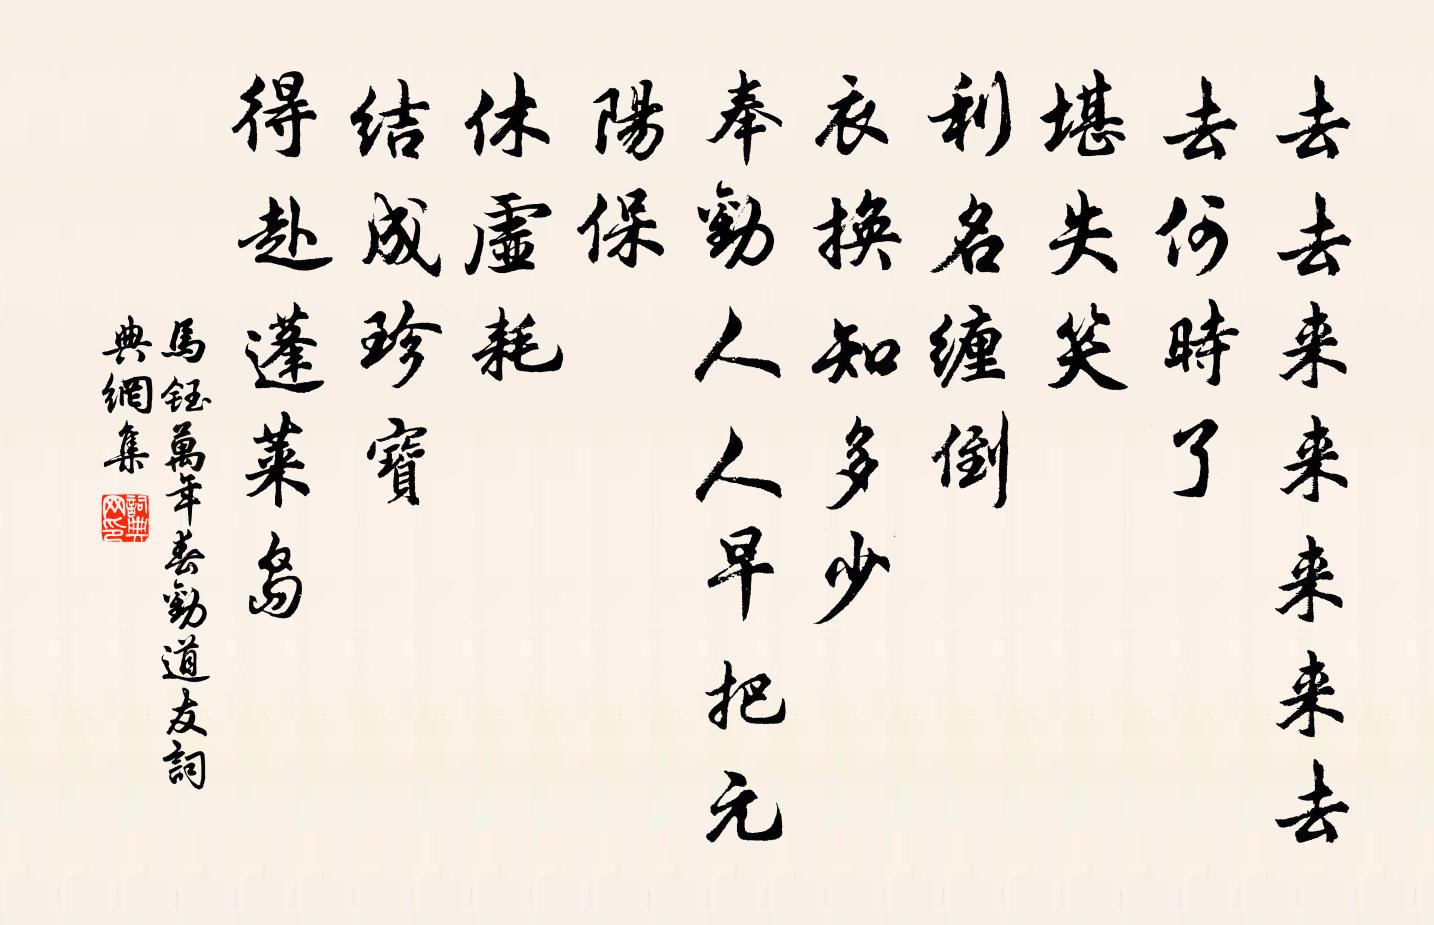 去去来来来来去
去何時了
堪失笑
利名缠倒
衣换知多少
奉勸人人早把元
陽保
休虛耗
结成珍寶
得赴蓬萊島
馬鈺萬年春勸道友詞
典網集
詞典网印